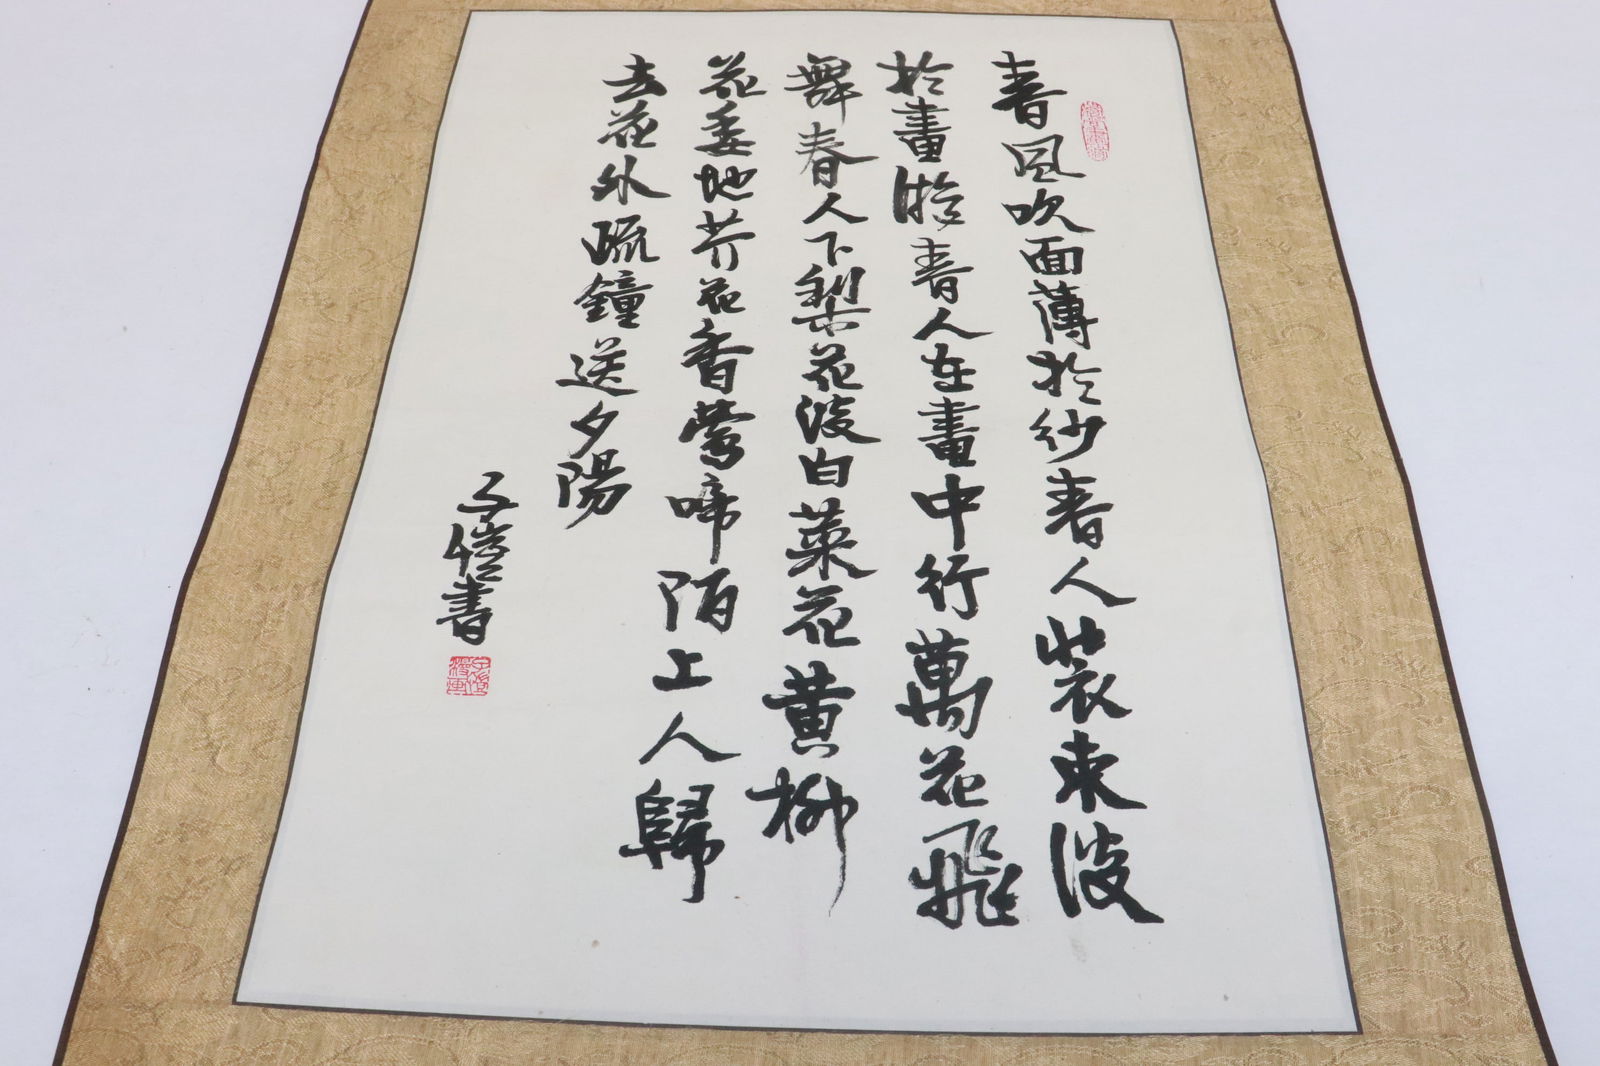 春風吹面薄於紗春人裝束淡
於畫游春人在畫中行萬花飛
舞春人下梨花淡白菜花黃柳
花委地芥花香鶯啼陌上人歸
去花外疏鐘送夕陽
子愷書